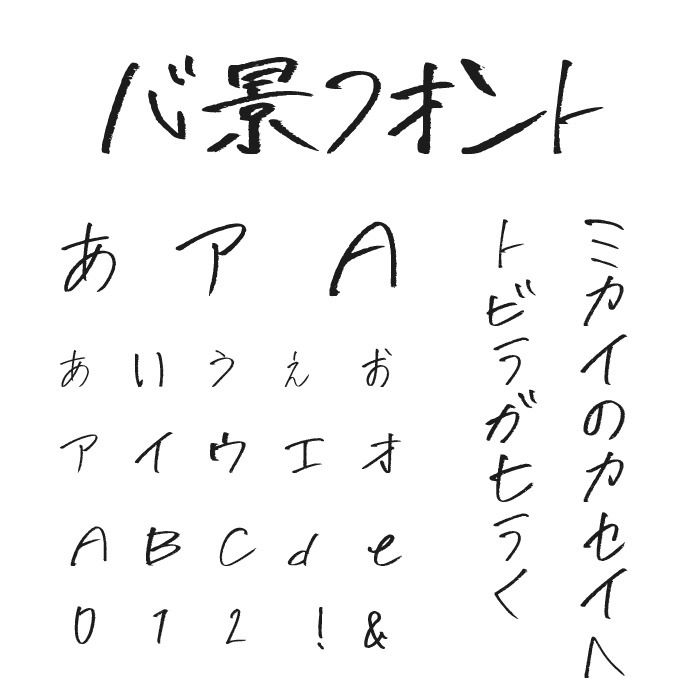 背景フォント
あ ア A
あ い う え お
ア イ ウ エ オ
A B C d e
0 1 2 ! &
ミカイのカセイへ
トビラがヒラく